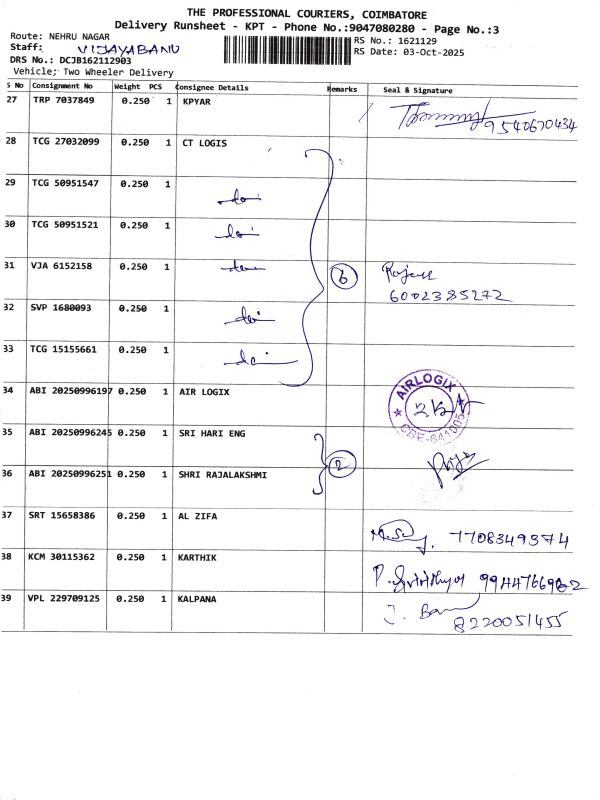 THE PROFESSIONAL COURIERS, COIMBATORE
Delivery Runsheet - KPT - Phone No.:9047080280 - Page No.:3
Route: NEHRU NAGAR
RS No.: 1621129
Staff: VIJAYABANU
RS Date: 03-Oct-2025
DRS No.: DCJB162112903
Vehicle; Two Wheeler Delivery
S No Consignment No Weight PCS Consignee Details Remarks Seal & Signature
27 TRP 7037849 0.250 1 KPYAR 9540670434
28 TCG 27032099 0.250 1 CT LOGIS
29 TCG 50951547 0.250 1 do
30 TCG 50951521 0.250 1 do
31 VJA 6152158 0.250 1 do 6 Rajesh
6002385272
32 SVP 1680093 0.250 1 do
33 TCG 15155661 0.250 1 do
34 ABI 20250996197 0.250 1 AIR LOGIX AIRLOGIX
CBE-641005
35 ABI 20250996245 0.250 1 SRI HARI ENG
2
36 ABI 20250996251 0.250 1 SHRI RAJALAKSHMI
37 SRT 15658386 0.250 1 AL ZIFA 7708349374
38 KCM 30115362 0.250 1 KARTHIK P. Srividhya 9944766982
39 VPL 229709125 0.250 1 KALPANA J. Banu
8220051455